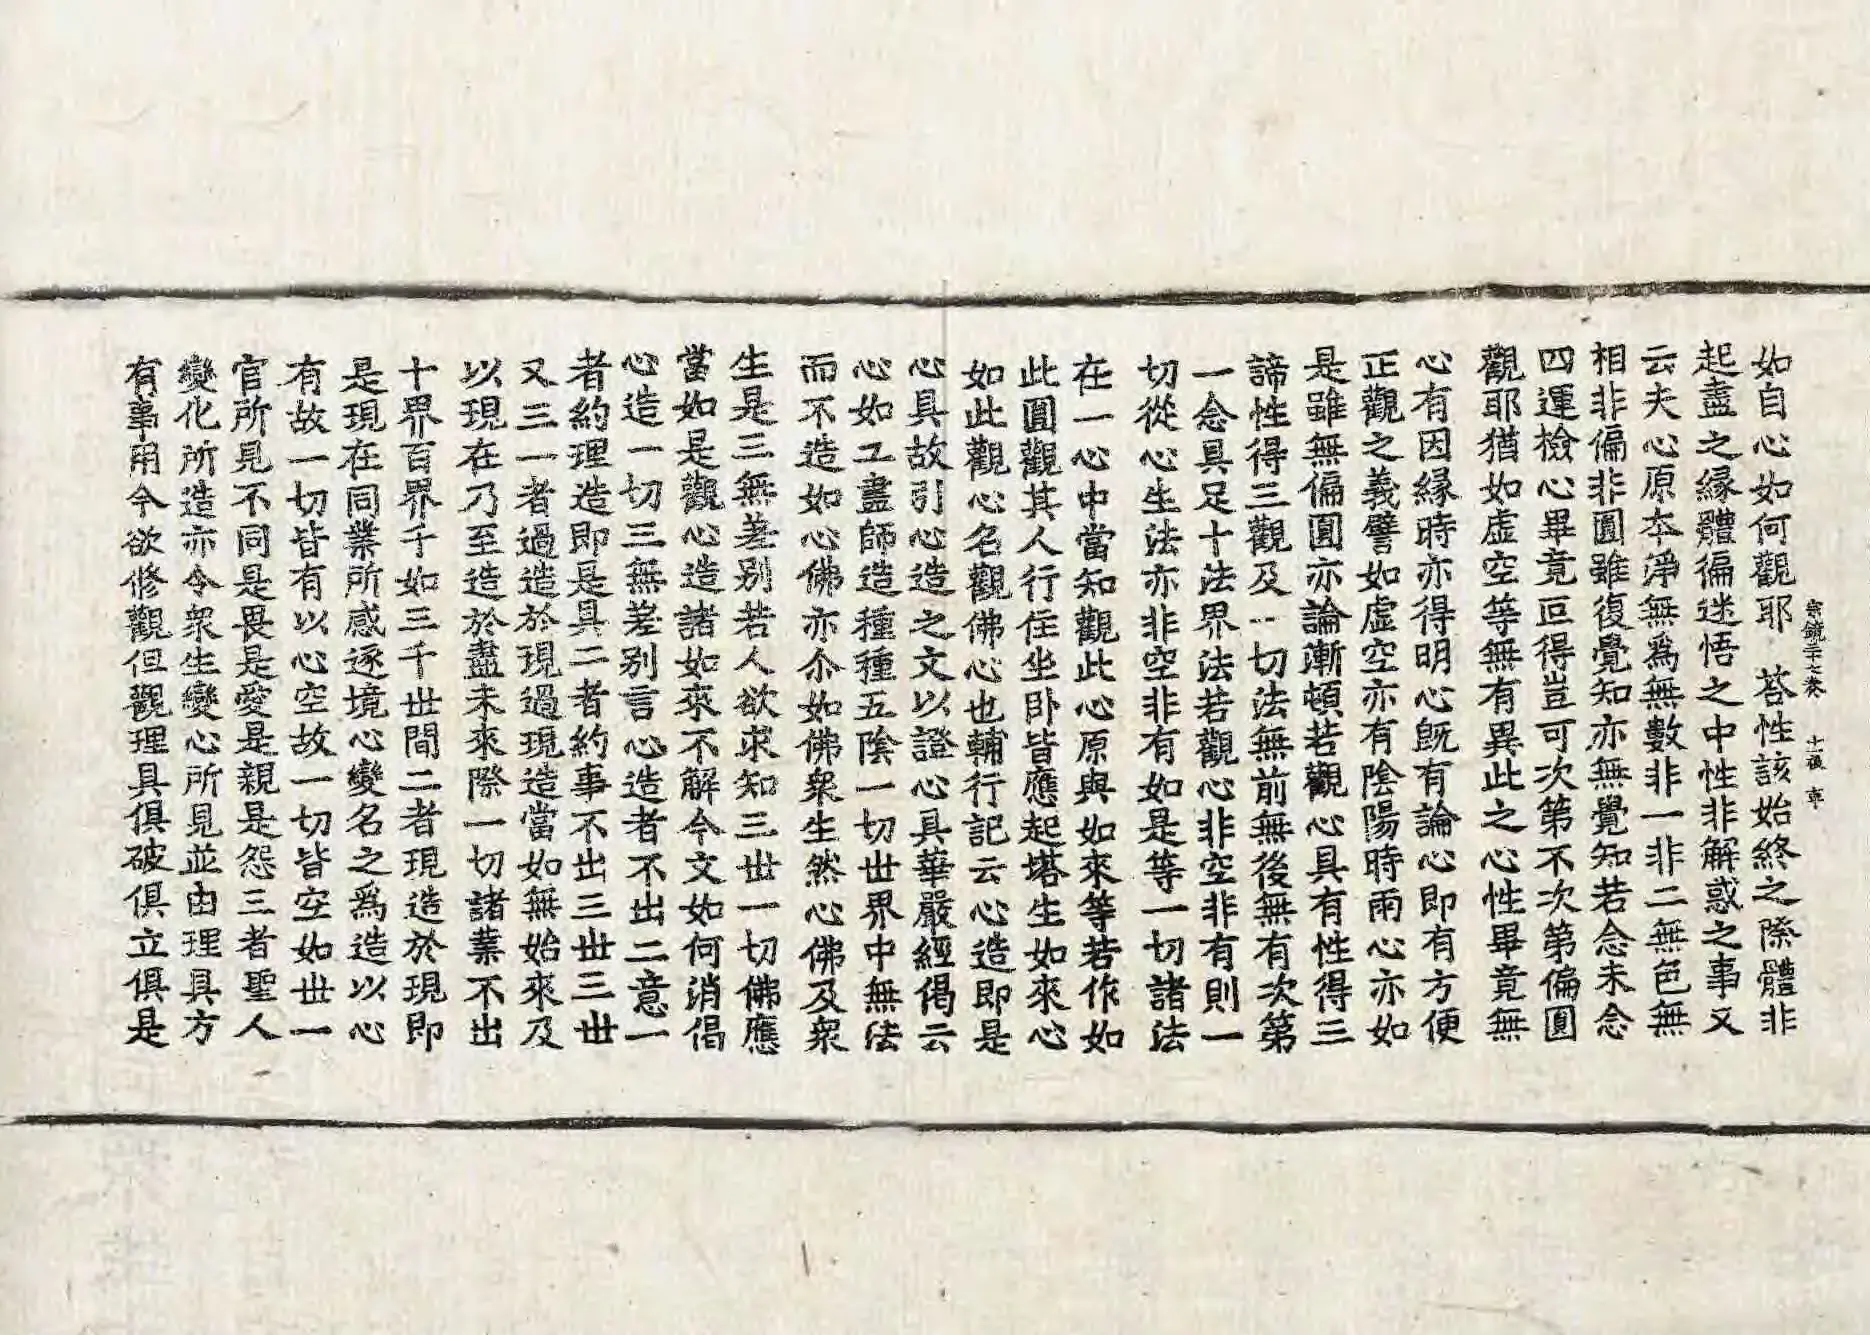 宗鏡三之卷 十一張 車
如自心如何觀耶 荅性該始終之際體非
起盡之緣體徧迷悟之中性非解惑之事又
云夫心原本淨無為無數非一非二無色無
相非偏非圓雖復覺知亦無覺知若念未念
四運檢心畢竟叵得豈可次第不次第偏圓
觀耶猶如虛空等無有異此之心性畢竟無
心有因緣時亦得明心旣有論心即有方便
正觀之義譬如虛空亦有陰陽時雨心亦如
是雖無偏圓亦論漸頓若觀心具有性得三
諦性得三觀及一切法無前無後無有次第
一念具足十法界法若觀心非空非有則一
切從心生法亦非空非有如是等一切諸法
在一心中當知觀此心原與如來等若作如
此圓觀其人行住坐卧皆應起塔生如來心
如此觀心名觀佛心也輔行記云心造即是
心具故引心造之文以證心具華嚴經偈云
心如工畫師造種種五陰一切世界中無法
而不造如心佛亦尒如佛衆生然心佛及衆
生是三無差别若人欲求知三世一切佛應
當如是觀心造諸如來不解今文如何消偈
心造一切三無差别言心造者不出二意一
者約理造即是具二者約事不出三世三世
又三一者過造於現過現造當如無始來及
以現在乃至造於盡未來際一切諸業不出
十界百界千如三千世間二者現造於現即
是現在同業所感逐境心變名之為造以心
有故一切皆有以心空故一切皆空如世一
官所見不同是畏是愛是親是怨三者聖人
變化所造亦令衆生變心所見並由理具方
有事用今欲修觀但觀理具俱破俱立俱是